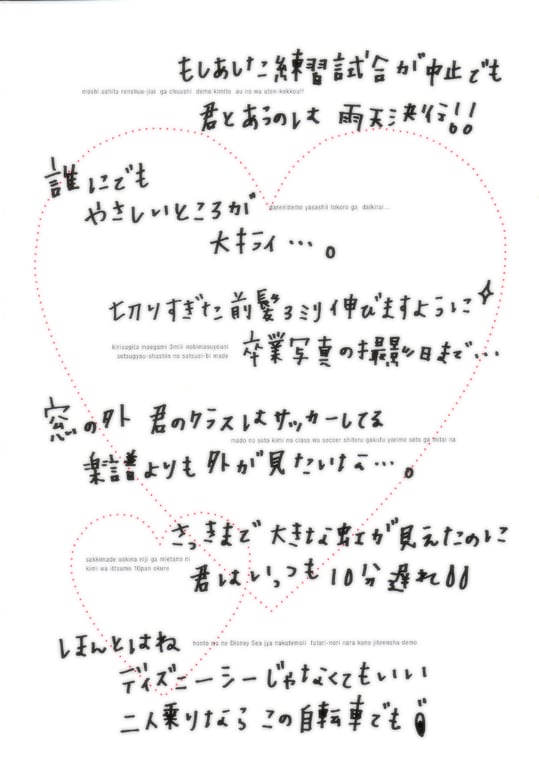 もしあした練習試合が中止でも
moshi ashita renshuu-jiai ga chuushi demo kimito au no wa uten-kekkou!!
君とあうのは 雨天決行!!
誰にでも
やさしいところが
darenidemo yasashii tokoro ga daikirai...
大キライ…。
切りすぎた前髪3ミリ伸びますように
kirisugita maegami 3mili nobimasuyouni
sotsugyou-shashiis no satsuei-bi made
卒業写真の撮影日まで…
窓の外 君のクラスはサッカーしてる
mado no soto kimi na class wa soccer shiteru gakufu yorimo soto ga mitai na
楽譜よりも外が見たいなぁ…。
さっきまで 大きな虹が見えたのに
sakkimade ookina niji ga mietano ni
kimi wa ittsumo 10pun okure
君はいっつも 10分遅れ
ほんとはね
honto wa ne Disney Sea jya nakutemoii futari-nori nara kono jitensha demo
ディズニーシーじゃなくてもいい
二人乗りなら この自転車でも